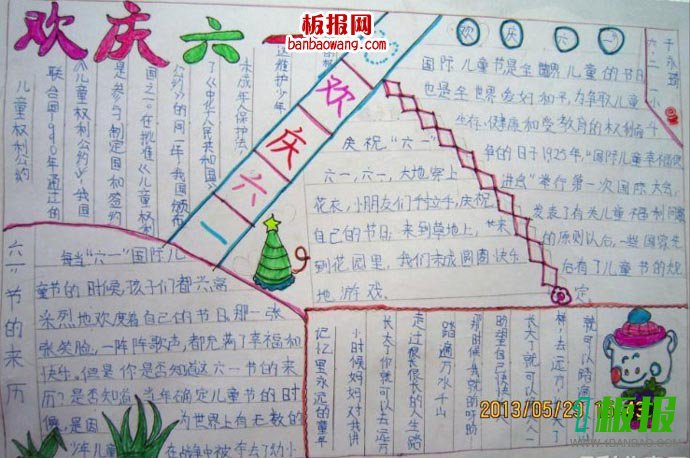 欢庆六一
板报网
banbaowang.com
欢庆六一
儿童权利公约
联合国1990年通过的
《儿童权利公约》，我国
是参与制定国和签约
国之一。在批准《儿童权利
公约》的同一年，我国颁布
了《中华人民共和国
未成年人保护法
欢庆六一
六·二
国际儿童节是全世界儿童的节日
也是全世界爱好和平，为争取儿童
生存、健康和受教育的权利而斗
争的日子1925年，“国际儿童幸福促
进会”举行第一次国际大会，
发表了有关儿童福利问题
的原则以后，一些国家先
后有了儿童节的规
定。
庆祝“六一”
六一，六一，大地穿上
花衣，小朋友们手拉手，庆祝
自己的节日，来到草地上，
到花园里，我们
快乐
地游戏。
六一节的来历
每当“六一”国际儿
童节的时候，孩子们都兴高
采烈地欢度着自己的节日，那一张
张笑脸，一阵阵歌声，都充满了幸福和
快乐。但是你是否知道这六一节的来
历？是否知道，当年确定儿童节的时
候，是因为世界上有无数的
少年儿童在战争中被夺去了幼小
就可以踏遍
样，去远方
长大了就可以
的望自己快快
那时候我就
踏遍万水千山
走过很长很长的人生路
长大了你就可以去远方
小时候妈妈对我讲
记忆里永远的童年
2013/05/29
板报
WWW.41BANBAO.COM